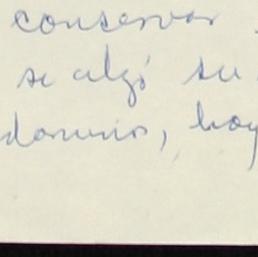 conservar
se alzó su
dominio, hoy